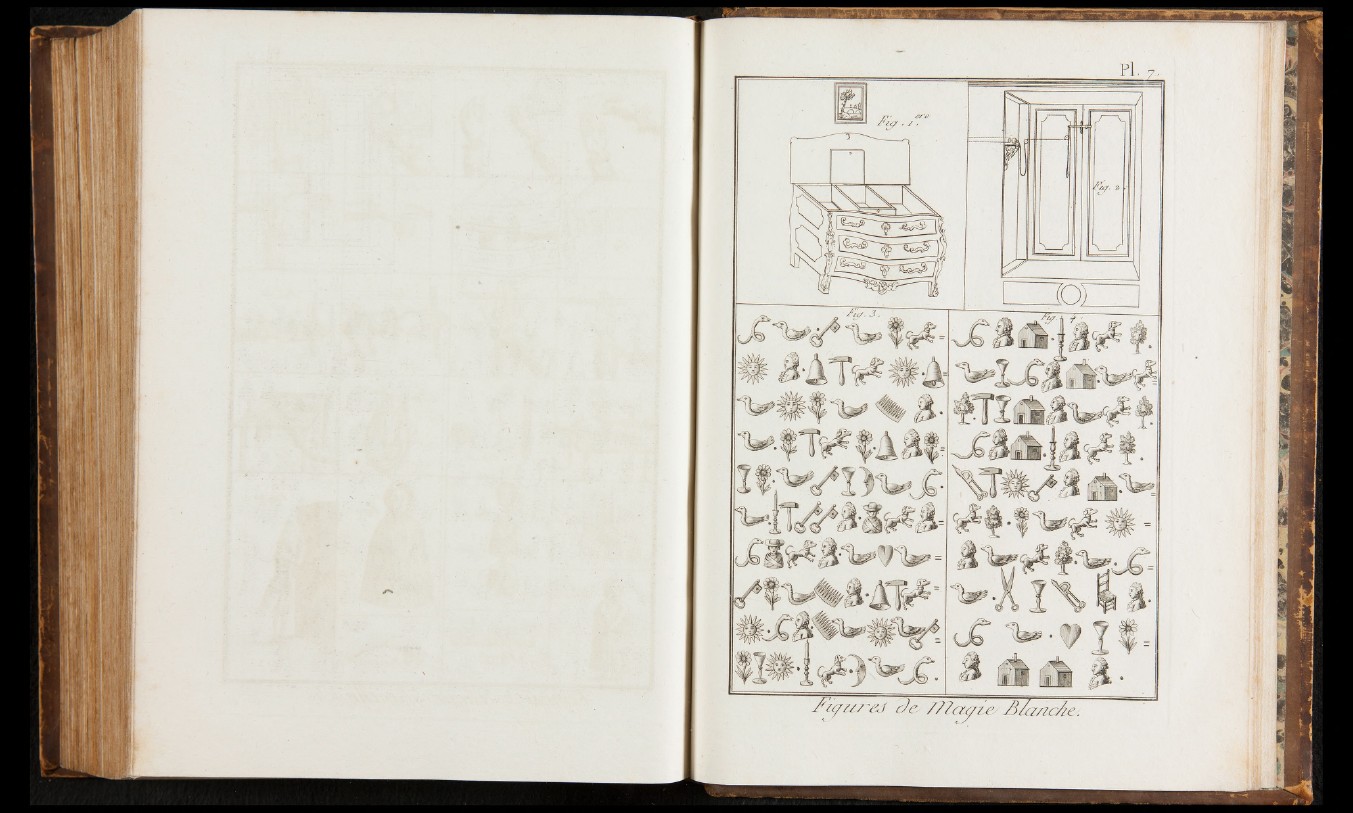 Pl. 7.
Fig. 1.ere
Fig. 2.
Fig. 3.
Fig. 4.
Figures de Magie Blanche.